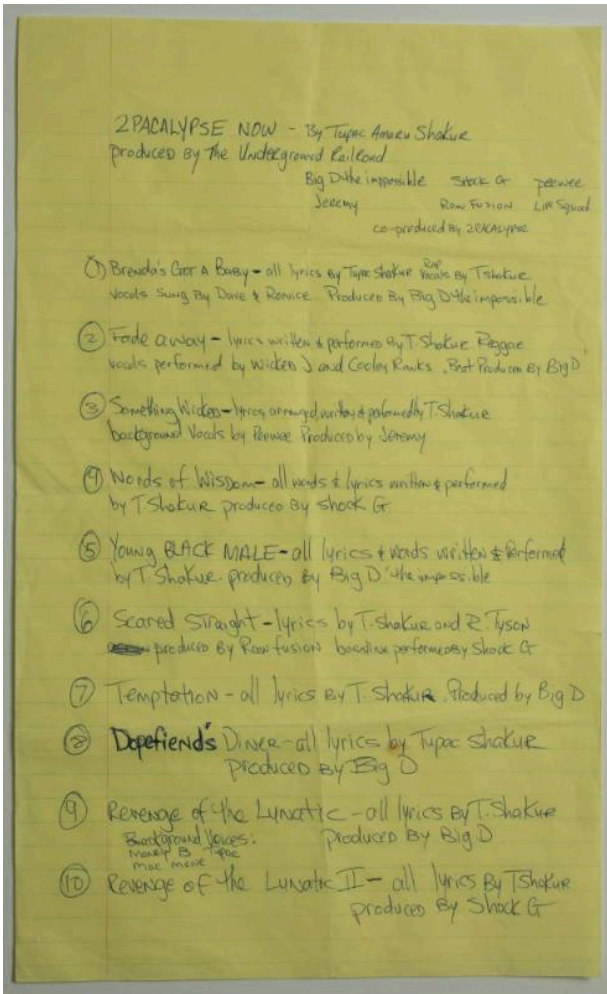 2PACALYPSE NOW - By Tupac Amaru Shakur
produced By The Underground Railroad
Big D the impossible Shock G peewee
Jeremy Raw Fusion Live Squad
co-produced By 2PACALYPSE
① Brenda's Got A Baby - all lyrics By Tupac Shakur Rap Vocals By T Shakur
Vocals Sung By Dave & Ronice. Produced By Big D the impossible
② Fade away - lyrics written & performed By T. Shakur Reggae
vocals performed by Wicked J and Cooley Ranks. Beat Produced By Big D
③ Something Wicked - lyrics arranged, written & performed by T. Shakur
background Vocals by Peewee Produced by Jeremy
④ Words of Wisdom - all words & lyrics written & performed
by T. Shakur produced By Shock G
⑤ Young BLACK MALE - all lyrics & words written & Performed
by T. Shakur produced By Big D 'the impossible
⑥ Scared Straight - lyrics by T. Shakur and R. Tyson
produced By Raw fusion bassline performed By Shock G
⑦ Temptation - all lyrics By T. Shakur. Produced by Big D
⑧ Dopefiend's Diner - all lyrics by Tupac Shakur
produced By Big D
⑨ Revenge of the Lunatic - all lyrics By T. Shakur
Background Voices: Produced By Big D
Money B Tupac
Mac Mone
⑩ Revenge of the Lunatic II - all lyrics By T Shakur
produced By Shock G